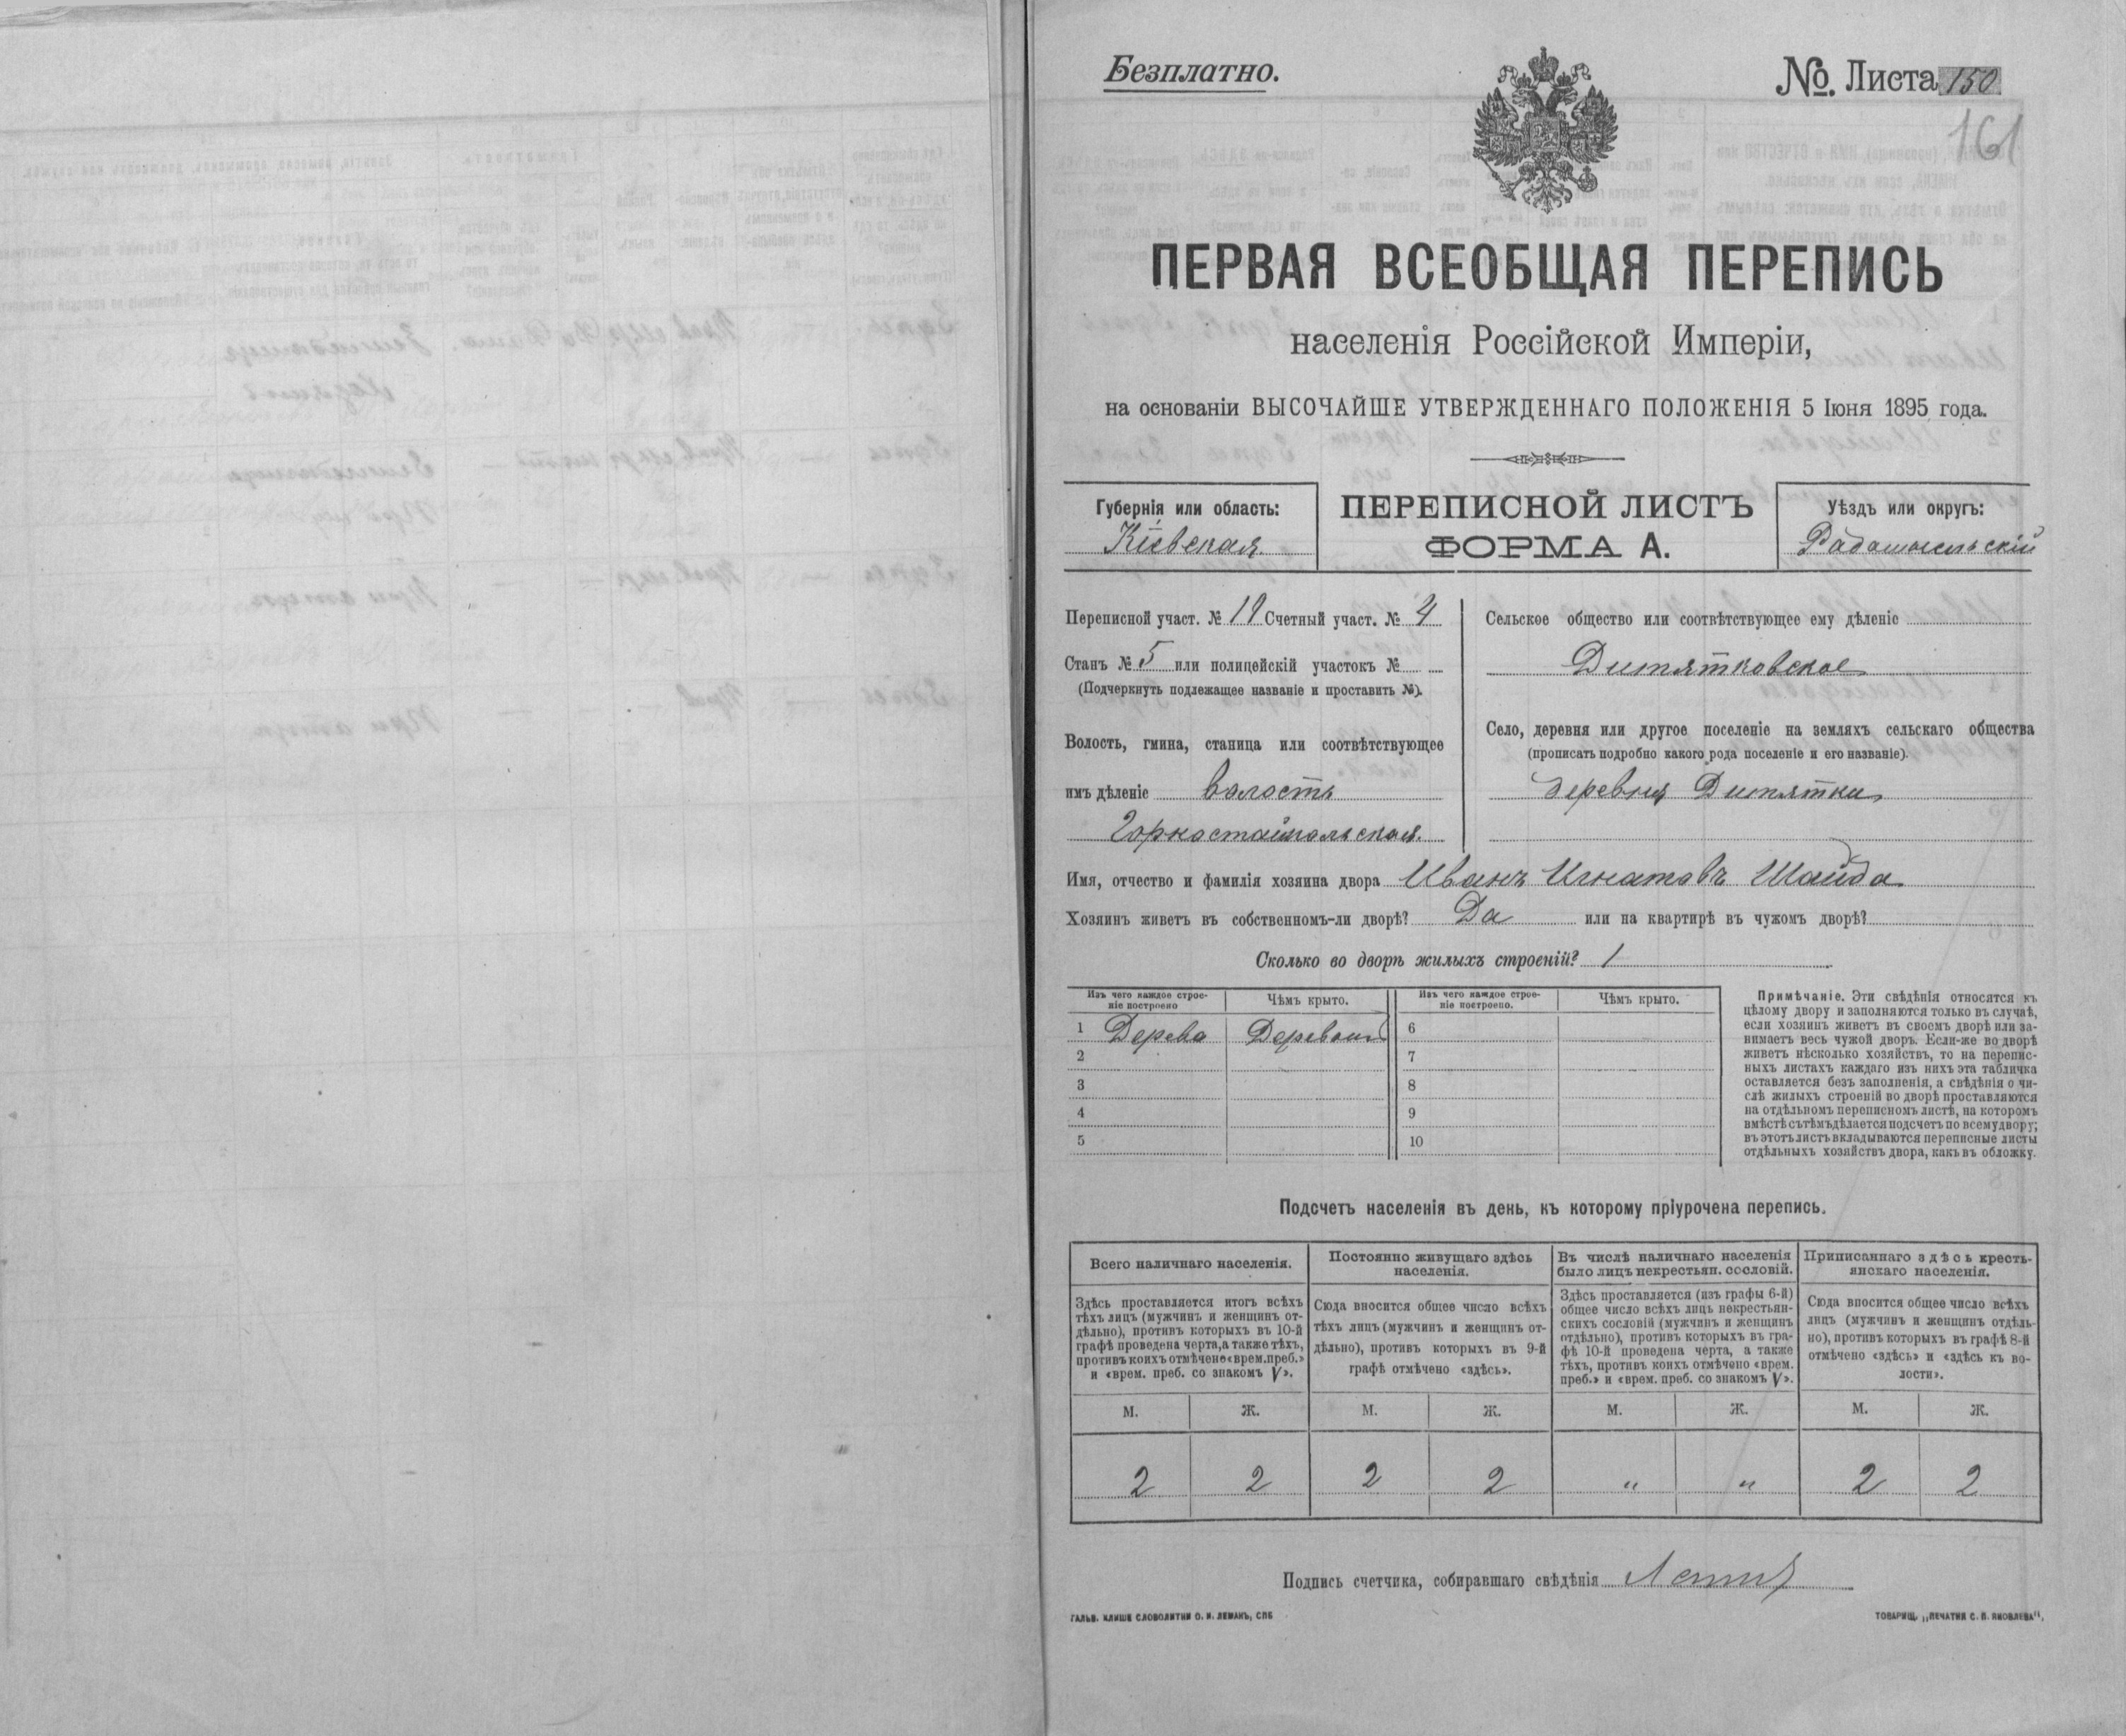 Безплатно.
№. Листа 150
161
ПЕРВАЯ ВСЕОБЩАЯ ПЕРЕПИСЬ
населенія Россійской Имперіи,
на основаніи ВЫСОЧАЙШЕ УТВЕРЖДЕННАГО ПОЛОЖЕНІЯ 5 Іюня 1895 года.
Губернія или область:
Кіевская
ПЕРЕПИСНОЙ ЛИСТЪ
ФОРМА А.
Уѣздъ или округъ:
Радомысльскій
Переписной участ. № 19 Счетный участ. № 4
Станъ № 5 или полицейскій участокъ №
(Подчеркнуть подлежащее названіе и проставить №).
Волость, гмина, станица или соотвѣтствующее
имъ дѣленіе волость
Горностайпольская.
Сельское общество или соотвѣтствующее ему дѣленіе
Дитятковское
Село, деревня или другое поселеніе на земляхъ сельскаго общества
(прописать подробно какого рода поселеніе и его названіе).
деревня Дитятки
Имя, отчество и фамилія хозяина двора Иванъ Игнатовъ Шайда
Хозяинъ живетъ въ собственномъ-ли дворѣ? Да или на квартирѣ въ чужомъ дворѣ?
Сколько во дворѣ жилыхъ строеній? 1
Изъ чего каждое строе-
ніе построено
Чѣмъ крыто.
Изъ чего каждое строе-
ніе построено.
Чѣмъ крыто.
1 Дерева
6
2
7
3
8
4
9
5
10
Примѣчаніе. Эти свѣдѣнія относятся къ
цѣлому двору и заполняются только въ случаѣ,
если хозяинъ живетъ въ своемъ дворѣ или за-
нимаетъ весь чужой дворъ. Если-же во дворѣ
живетъ нѣсколько хозяйствъ, то на перепис-
ныхъ листахъ каждаго изъ нихъ эта табличка
оставляется безъ заполненія, а свѣдѣнія о чи-
слѣ жилыхъ строеній во дворѣ проставляются
на отдѣльномъ переписномъ листѣ, на которомъ
вмѣстѣ съ тѣмъ дѣлается подсчетъ по всему двору;
въ этотъ листъ вкладываются переписные листы
отдѣльныхъ хозяйствъ двора, какъ въ обложку.
Подсчетъ населенія въ день, къ которому пріурочена перепись.
Всего наличнаго населенія.
Постоянно живущаго здѣсь
населенія.
Въ числѣ наличнаго населенія
было лицъ некрестьян. сословій.
Приписаннаго здѣсь кресть-
янскаго населенія.
Здѣсь проставляется итогъ всѣхъ
тѣхъ лицъ (мужчинъ и женщинъ от-
дѣльно), противъ которыхъ въ 10-й
графѣ проведена черта, а также тѣхъ,
противъ коихъ отмѣчено «врем. преб.»
и «врем. преб. со знакомъ V».
Сюда вносится общее число всѣхъ
тѣхъ лицъ (мужчинъ и женщинъ от-
дѣльно), противъ которыхъ въ 9-й
графѣ отмѣчено «здѣсь».
Здѣсь проставляется (изъ графы 6-й)
общее число всѣхъ лицъ некрестьян-
скихъ сословій (мужчинъ и женщинъ
отдѣльно), противъ которыхъ въ гра-
фѣ 10-й проведена черта, а также
тѣхъ, противъ коихъ отмѣчено «врем.
преб.» и «врем. преб. со знакомъ V».
Сюда вносится общее число всѣхъ
лицъ (мужчинъ и женщинъ отдѣль-
но), противъ которыхъ въ графѣ 8-й
отмѣчено «здѣсь» и «здѣсь къ во-
лости».
М. Ж. М. Ж. М. Ж. М. Ж.
2 2 2 2 " " 2 2
Подпись счетчика, собиравшаго свѣдѣнія
ГАЛЬВ. КЛИШЕ СЛОВОЛИТНИ О. И. ЛЕМАНЪ, СПБ
ТОВАРИЩ. „ПЕЧАТНЯ С. П. ЯКОВЛЕВА“.